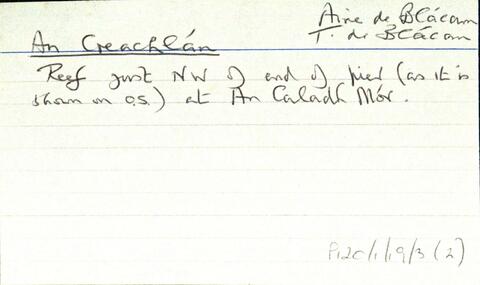 Aine de Blácam
T. de Blácam
An Creachlán
Reef just NW of end of pier (as it is
shown on o.s.) at An Caladh Mór.
P120/1/19/3 (2)